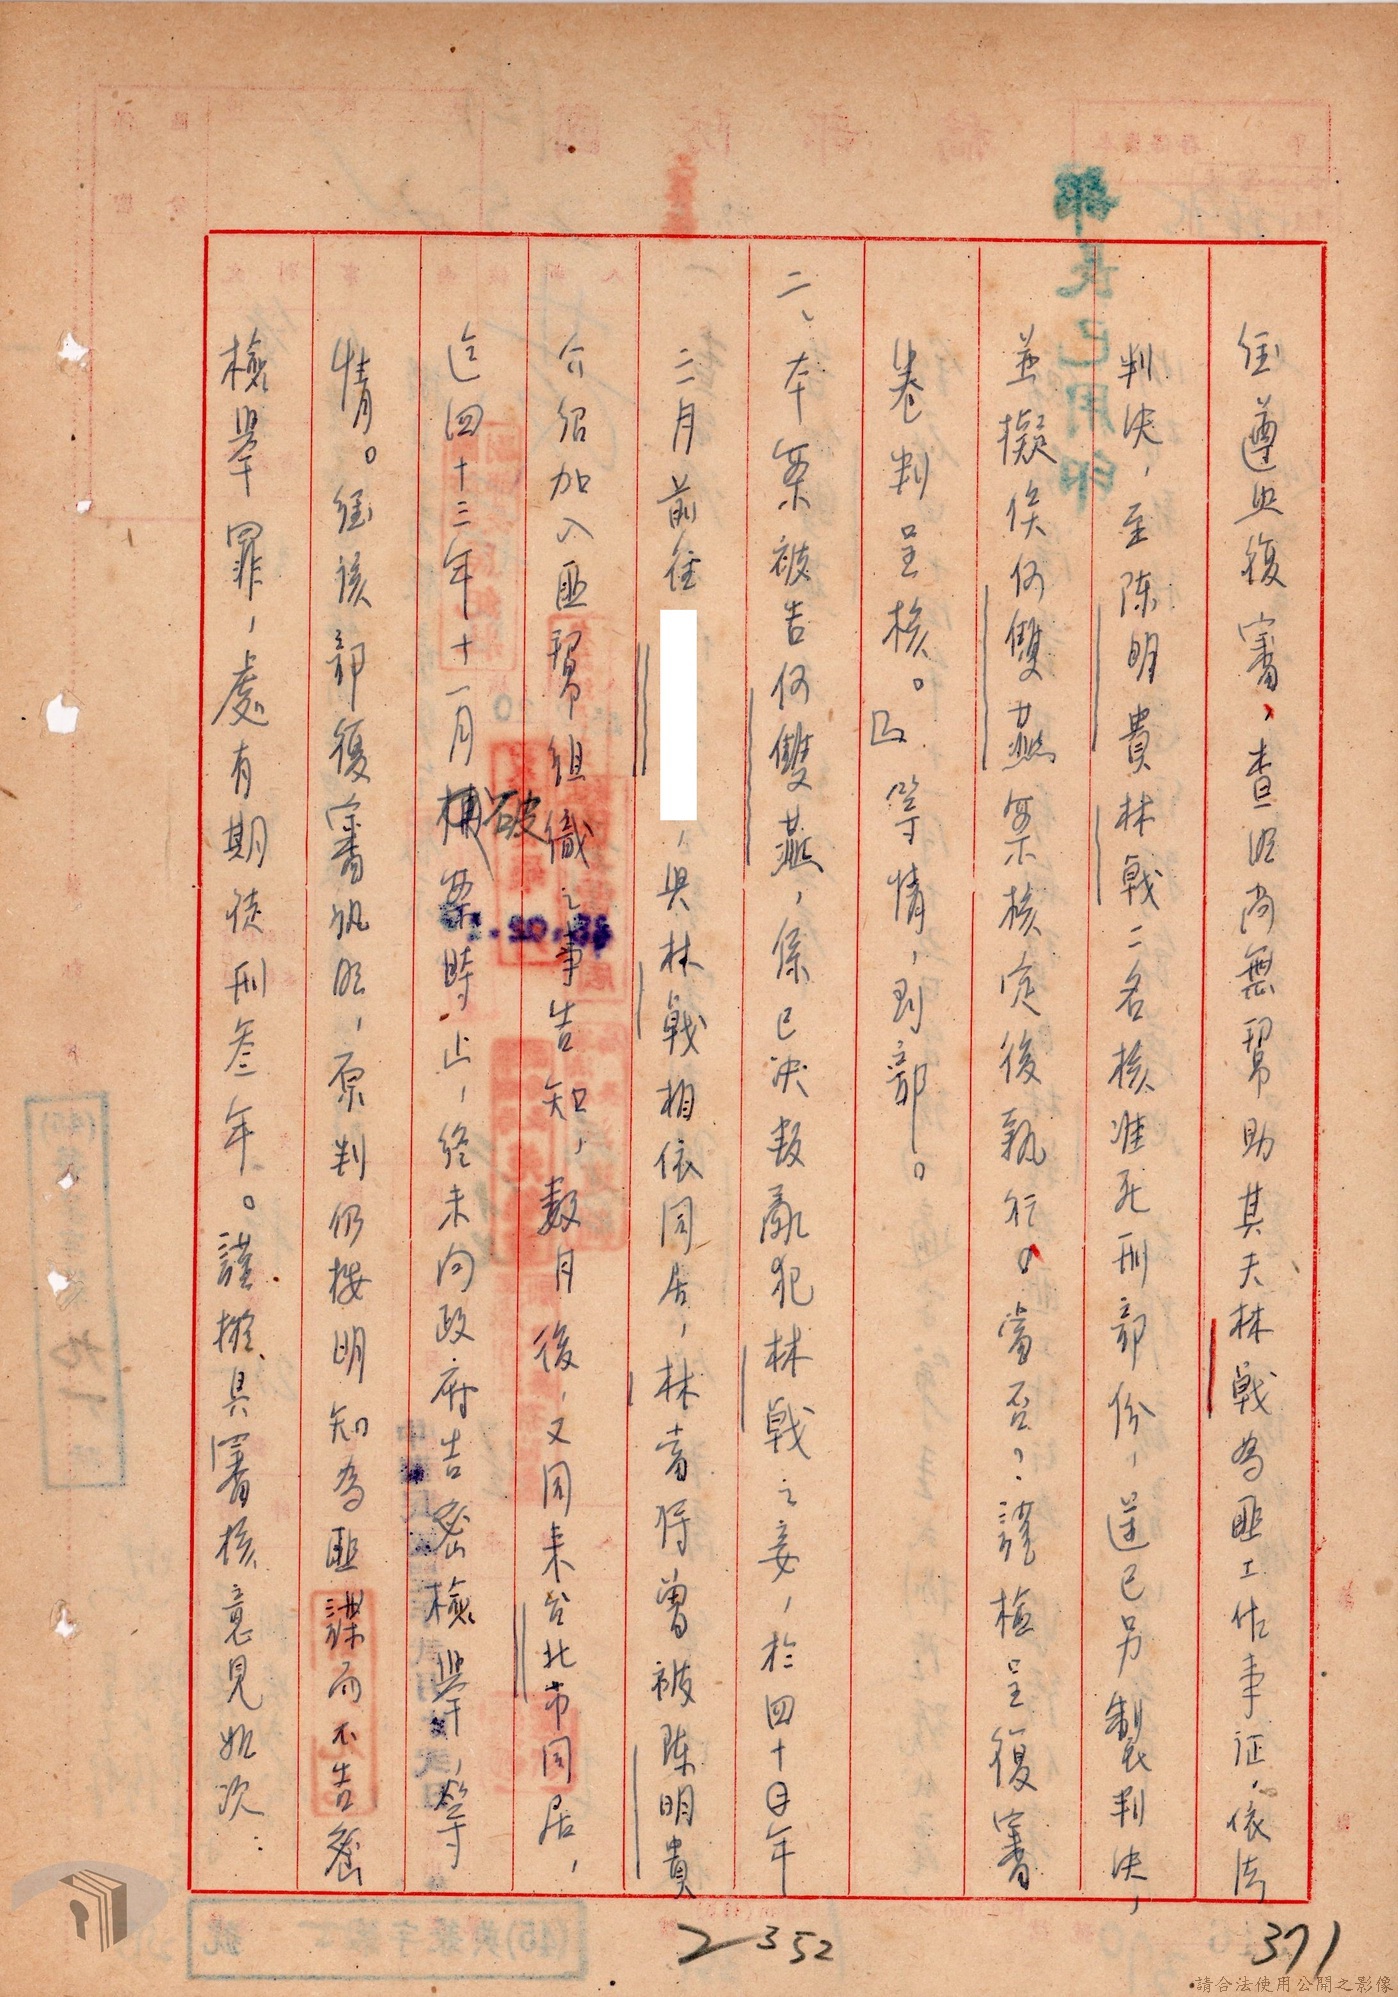 經遵照復審、查證尚無幫助其夫林戟為匪工作事証，依法
判決，至陳明貴林戟二名核准死刑部份，遂已另製判決，
並擬俟何雙燕案核定後執行。當否？謹檢呈復審
卷判呈核。」等情，到部。
二、本案被告何雙燕，係已決叛亂犯林戟之妾，於四十年
二月前往，與林戟相依同居，林當將曾被陳明貴
介紹加入匪幫組織之事告知，數月後，又同來台北市同居，
迄四十三年十一月破案時止，終未向政府告密檢舉，等
情。經該部復審訊證，原判仍按明知為匪諜而不告密
檢舉罪，處有期徒刑叁年。謹擬具審核意見如次：
部長已用印
2352
371
請合法使用公開之影像